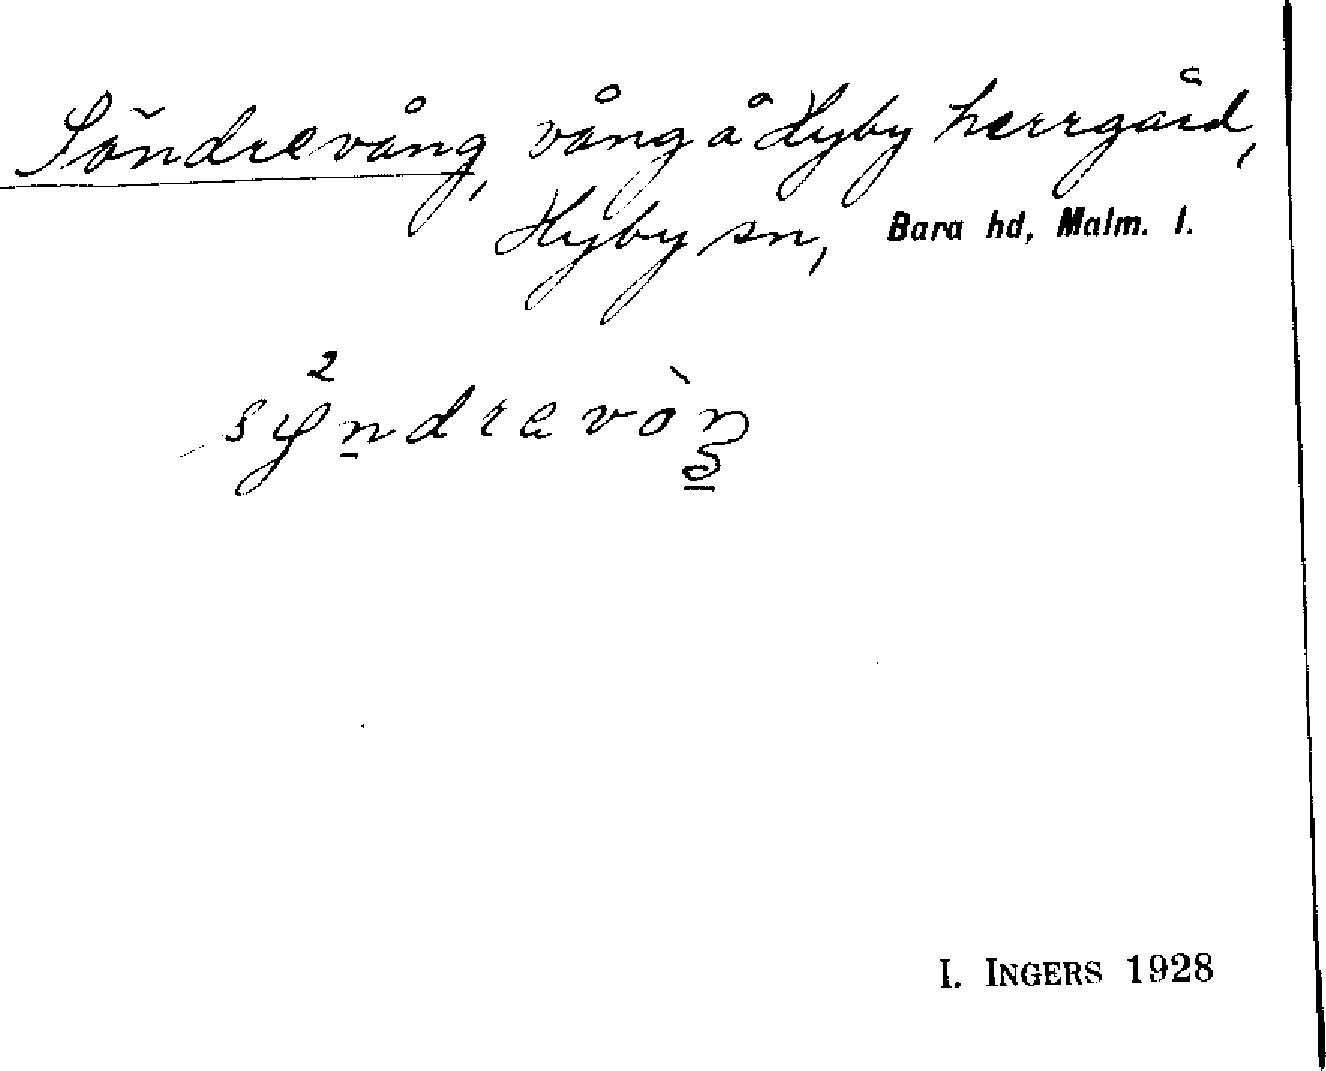 Söndrevång, vång å Hyby herrgård,
Hyby sn, Bara hd, Malm. l.
I. INGERS 1928